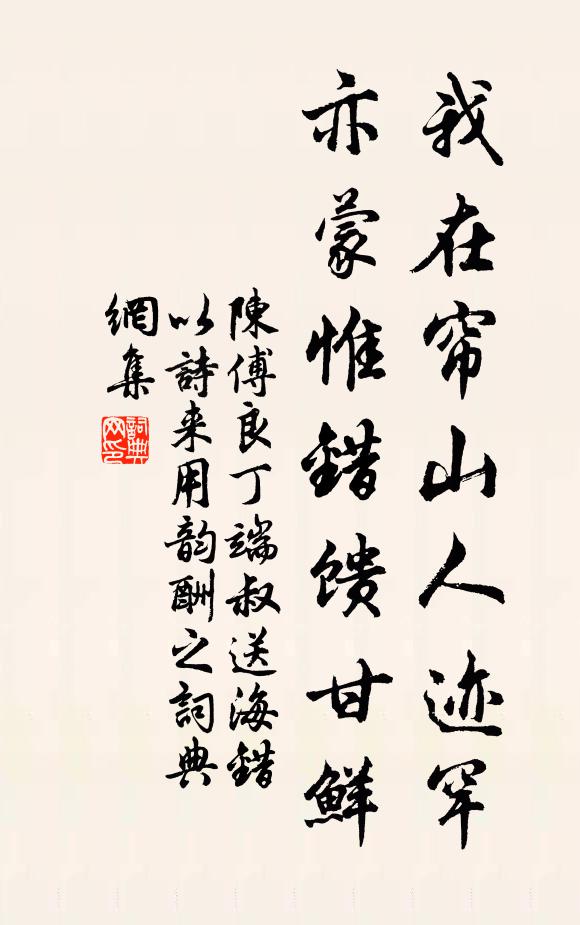 我在帘山人迹罕
亦蒙惟错馈甘鲜
陳傅良丁端叔送海錯
以詩来用韵酬之詞典
網集
詞典
网印